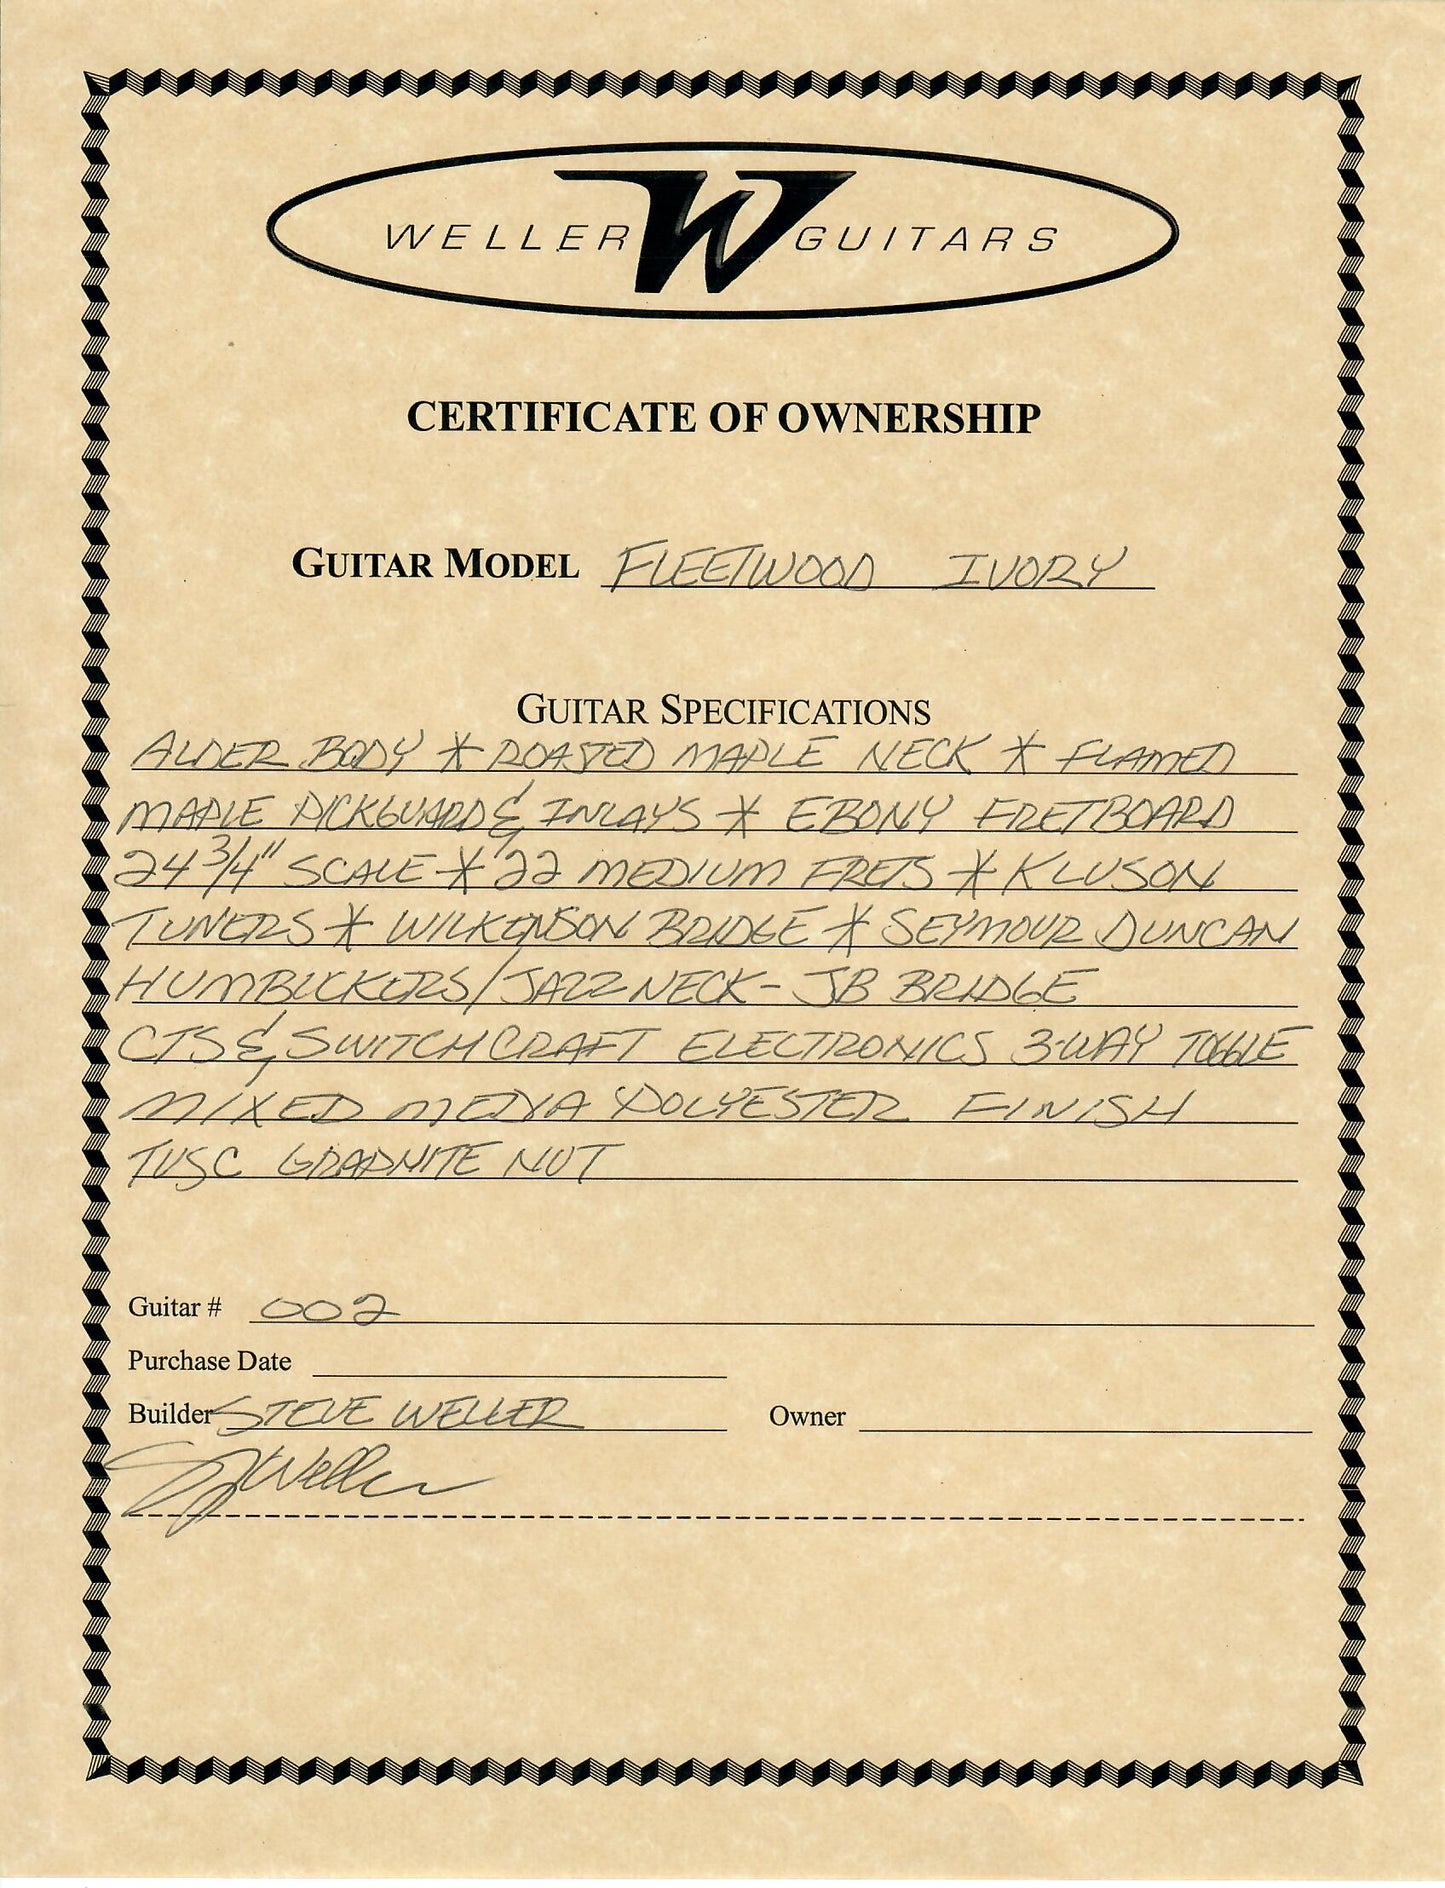 WELLER W GUITARS
CERTIFICATE OF OWNERSHIP
GUITAR MODEL FLEETWOOD IVORY
GUITAR SPECIFICATIONS
ALDER BODY * ROASTED MAPLE NECK * FLAMED
MAPLE PICKGUARD & INLAYS * EBONY FRETBOARD
24 3/4" SCALE * 22 MEDIUM FRETS * KLUSON
TUNERS * WILKINSON BRIDGE * SEYMOUR DUNCAN
HUMBUCKERS/JAZZ NECK - JB BRIDGE
CTS & SWITCHCRAFT ELECTRONICS 3-WAY TOGGLE
MIXED MEDIA POLYESTER FINISH
TUSC GRAPHITE NUT
Guitar # 002
Purchase Date
Builder STEVE WELLER Owner
S Weller